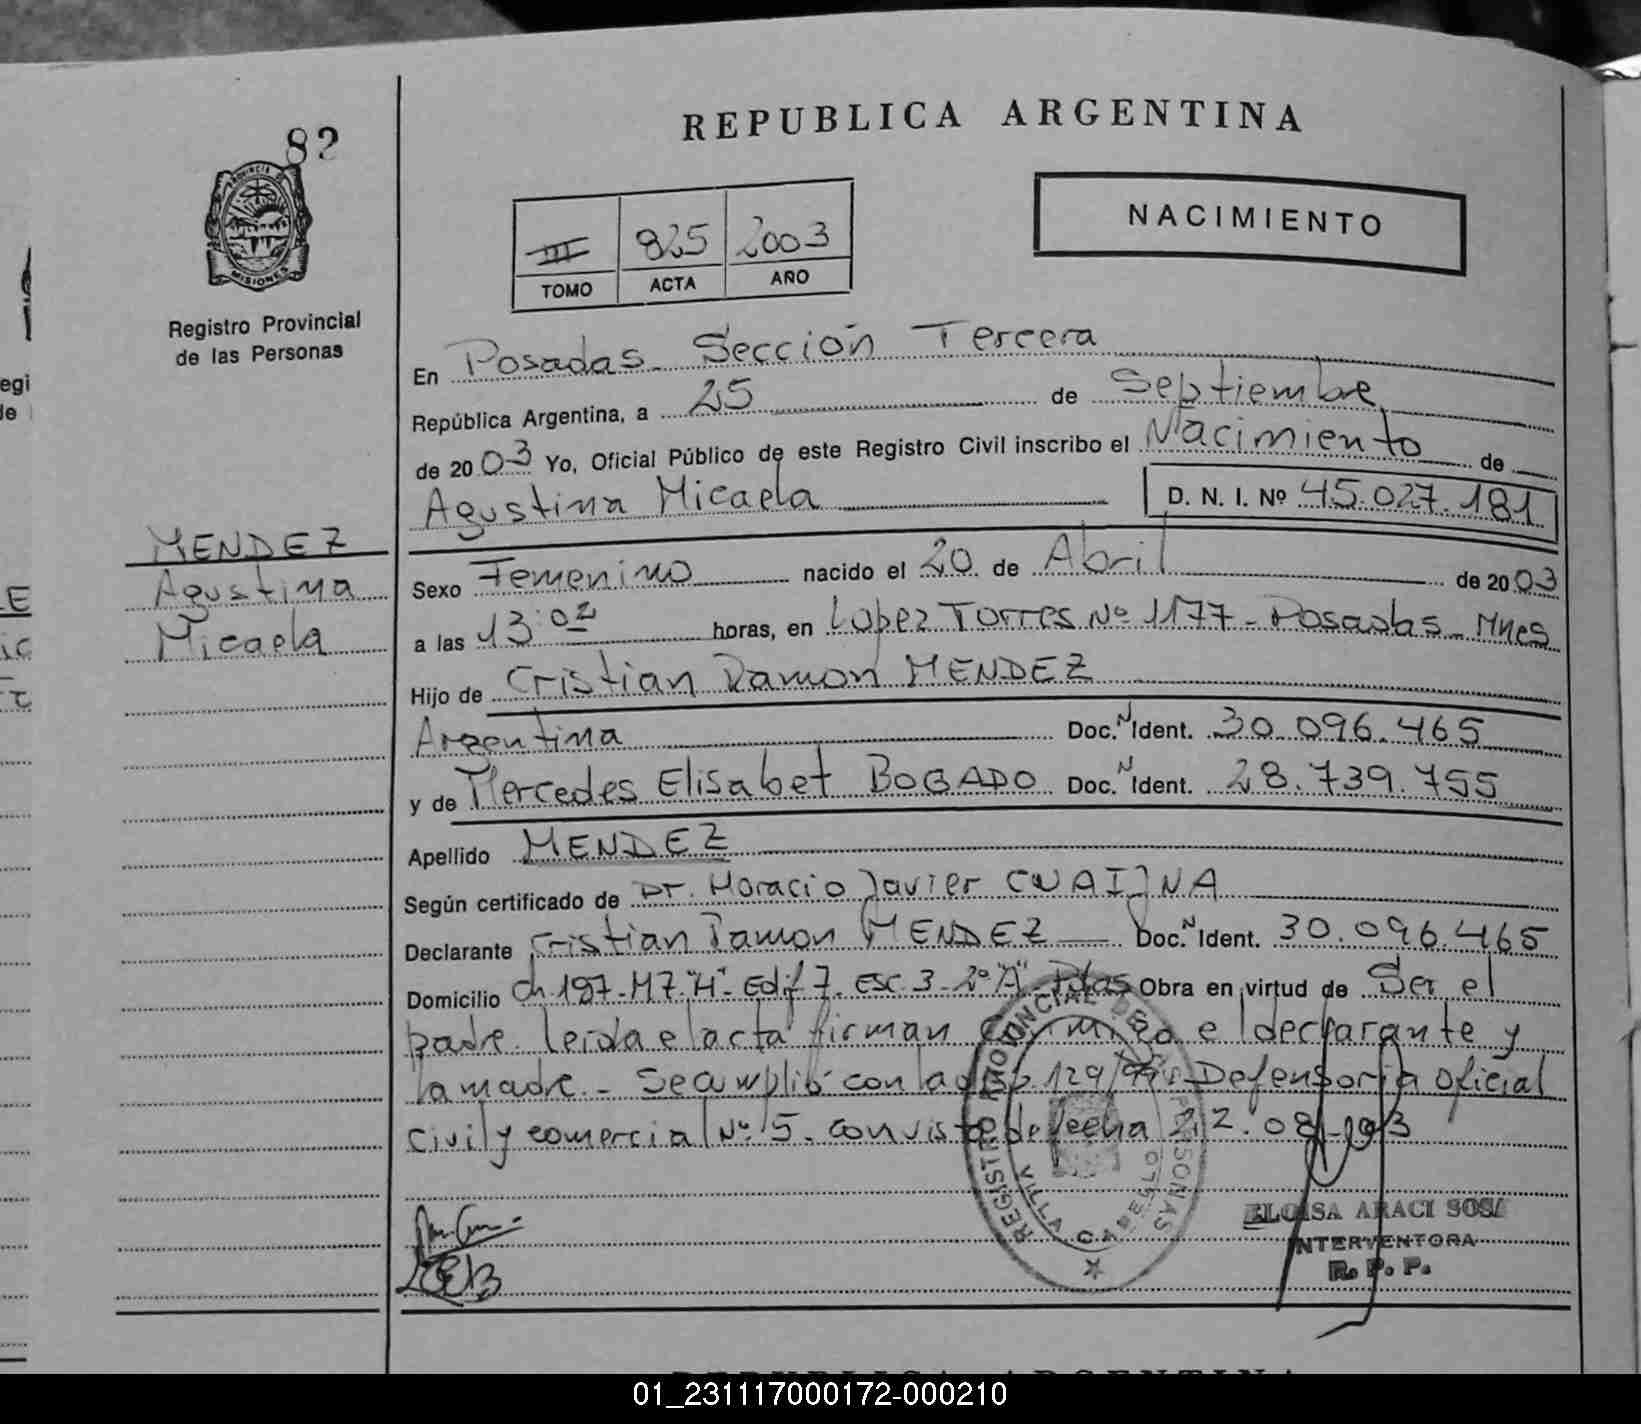 82
REPUBLICA ARGENTINA
NACIMIENTO
III 825 2003
TOMO ACTA AÑO
PROVINCIA DE
MISIONES
Registro Provincial
de las Personas
MENDEZ
Agustina
Micaela
En Posadas. Sección Tercera
República Argentina, a 25 de Septiembre
de 2003 Yo, Oficial Público de este Registro Civil inscribo el Nacimiento de
Agustina Micaela D. N. I. Nº 45.027.181
Sexo Femenino nacido el 20 de Abril de 2003
a las 13:02 horas, en Lopez Torres Nº 1177 - Posadas - Mnes
Hijo de Cristian Ramon MENDEZ
Argentina Doc. N Ident. 30.096.465
y de Mercedes Elisabet BOGADO Doc. N Ident. 28.739.755
Apellido MENDEZ
Según certificado de Dr. Horacio Javier
Declarante Cristian Ramon MENDEZ Doc. N Ident. 30.096.465
Domicilio ch 197 - M7 "H" - Edif 7. Esc. 3 - 2º "A" - Pdas Obra en virtud de Ser el
padre. leida el acta firman conmigo el declarante y
la madre. - Se cumplió con la disp. 129/99 Defensoria Oficial
Civil y comercial Nº 5. con vista de fecha 22.08.03
REGISTRO PROVINCIAL DE PERSONAS
VILLA CABELLO
ELOISA ARACI SOSA
INTERVENTORA
R. P. P.
REPUBLICA ARGENTINA
01_231117000172-000210